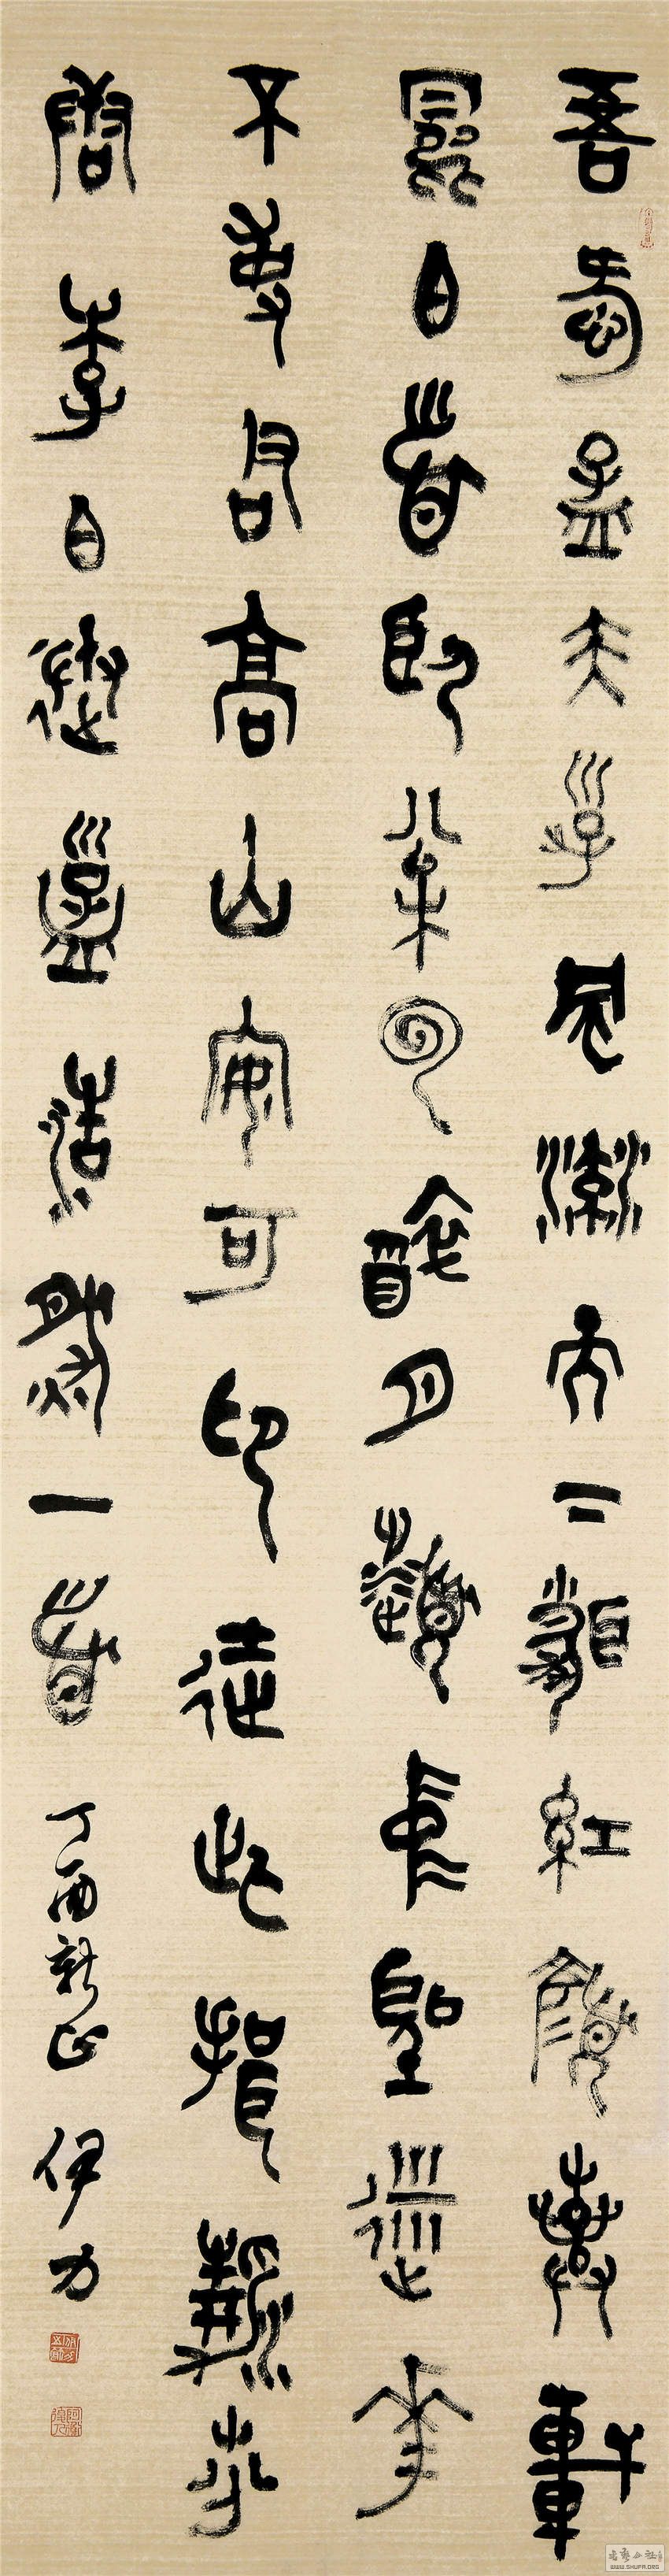 吾愛孟夫子風流天下聞紅顏棄軒
冕白首臥松雲醉月頻中聖迷花
不事君高山安可仰徒此揖清芬
唐李白孟浩然一首
丁酉新正 伊力
WWW.SHUFA.ORG